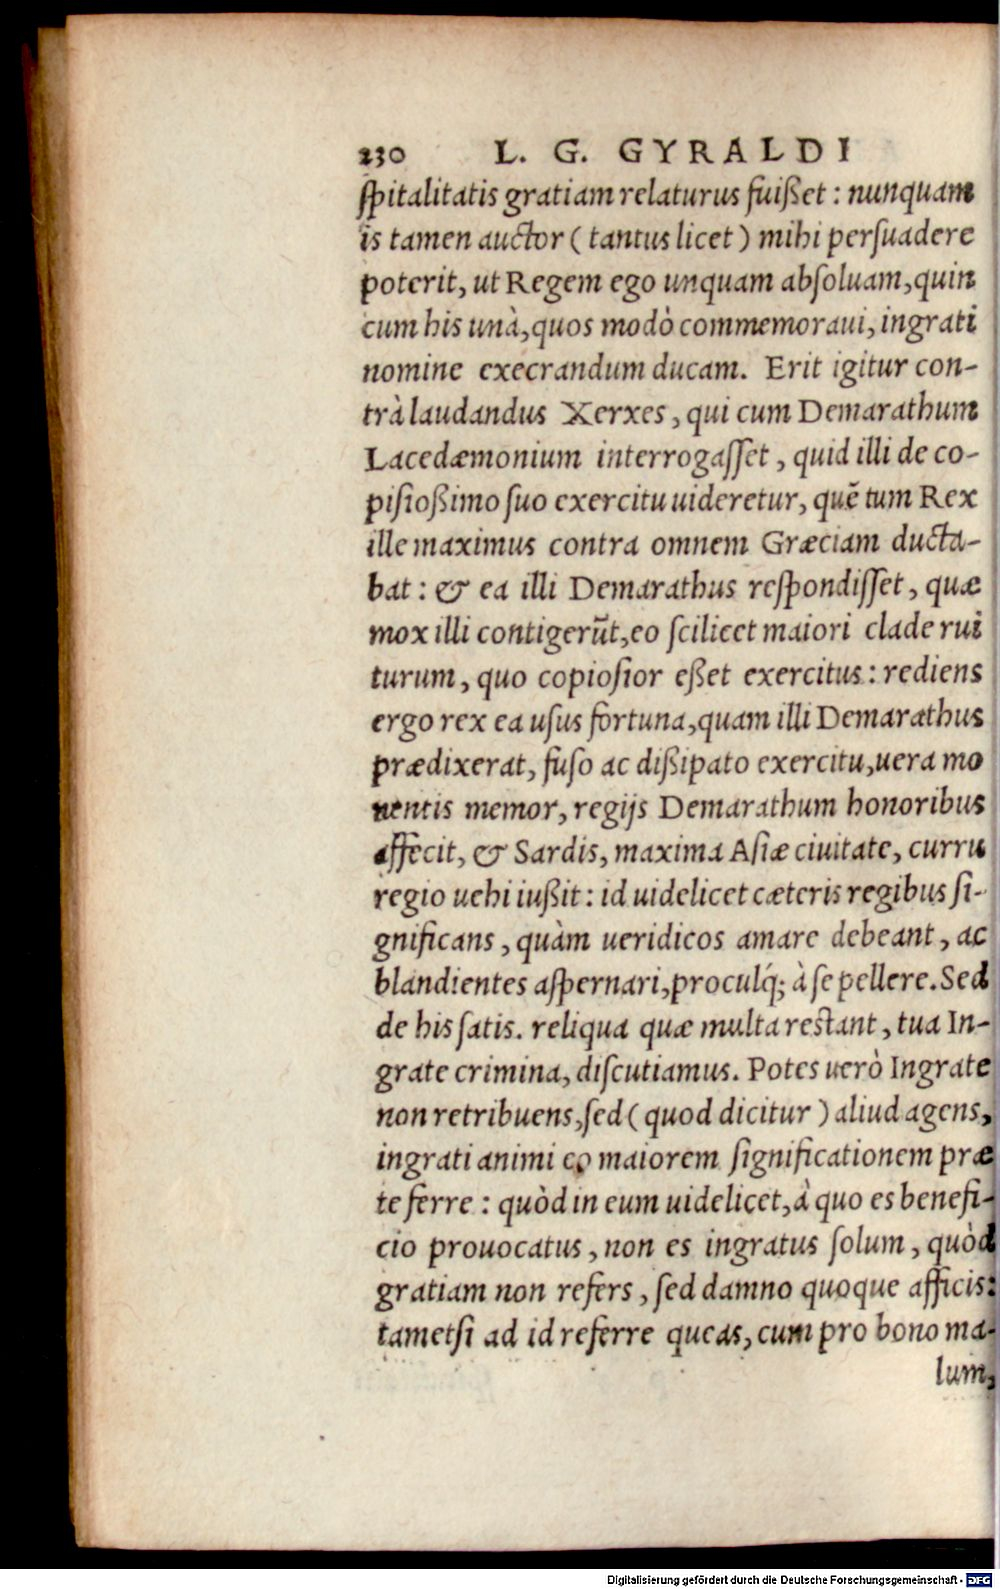 230 L. G. GYRALDI
ſpitalitatis gratiam relaturus fuißet : nunquam
is tamen auctor ( tantus licet ) mihi perſuadere
poterit, ut Regem ego unquam abſoluam, quin
cum his unà, quos modò commemoraui, ingrati
nomine execrandum ducam. Erit igitur con-
trà laudandus Xerxes, qui cum Demarathum
Lacedæmonium interrogaſſet, quid illi de co-
pioſißimo ſuo exercitu uideretur, quẽ tum Rex
ille maximus contra omnem Græciam ducta-
bat : & ea illi Demarathus reſpondiſſet, quæ
mox illi contigerũt, eo ſcilicet maiori clade rui
turum, quo copioſior eßet exercitus : rediens
ergo rex ea uſus fortuna, quam illi Demarathus
prædixerat, fuſo ac dißipato exercitu, uera mo
nentis memor, regijs Demarathum honoribus
affecit, & Sardis, maxima Aſiæ ciuitate, curru
regio uehi iußit : id uidelicet cæteris regibus ſi-
gnificans, quàm ueridicos amare debeant, ac
blandientes aſpernari, proculq́; à ſe pellere. Sed
de his ſatis. reliqua quæ multa reſtant, tua In-
grate crimina, diſcutiamus. Potes uerò Ingrate
non retribuens, ſed ( quod dicitur ) aliud agens,
ingrati animi eo maiorem ſignificationem præ
te ferre : quòd in eum uidelicet, à quo es benefi-
cio prouocatus, non es ingratus ſolum, quòd
gratiam non refers, ſed damno quoque afficis:
tametſi ad id referre queas, cum pro bono ma-
lum,
Digitalisierung gefördert durch die Deutsche Forschungsgemeinschaft - DFG